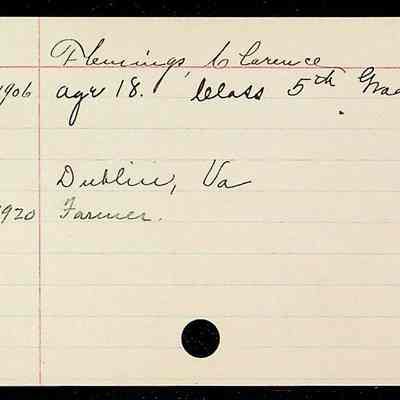 Flemings, Clarence
1906 age 18. Class 5th Grad
Dublin, Va
1920 Farmer.